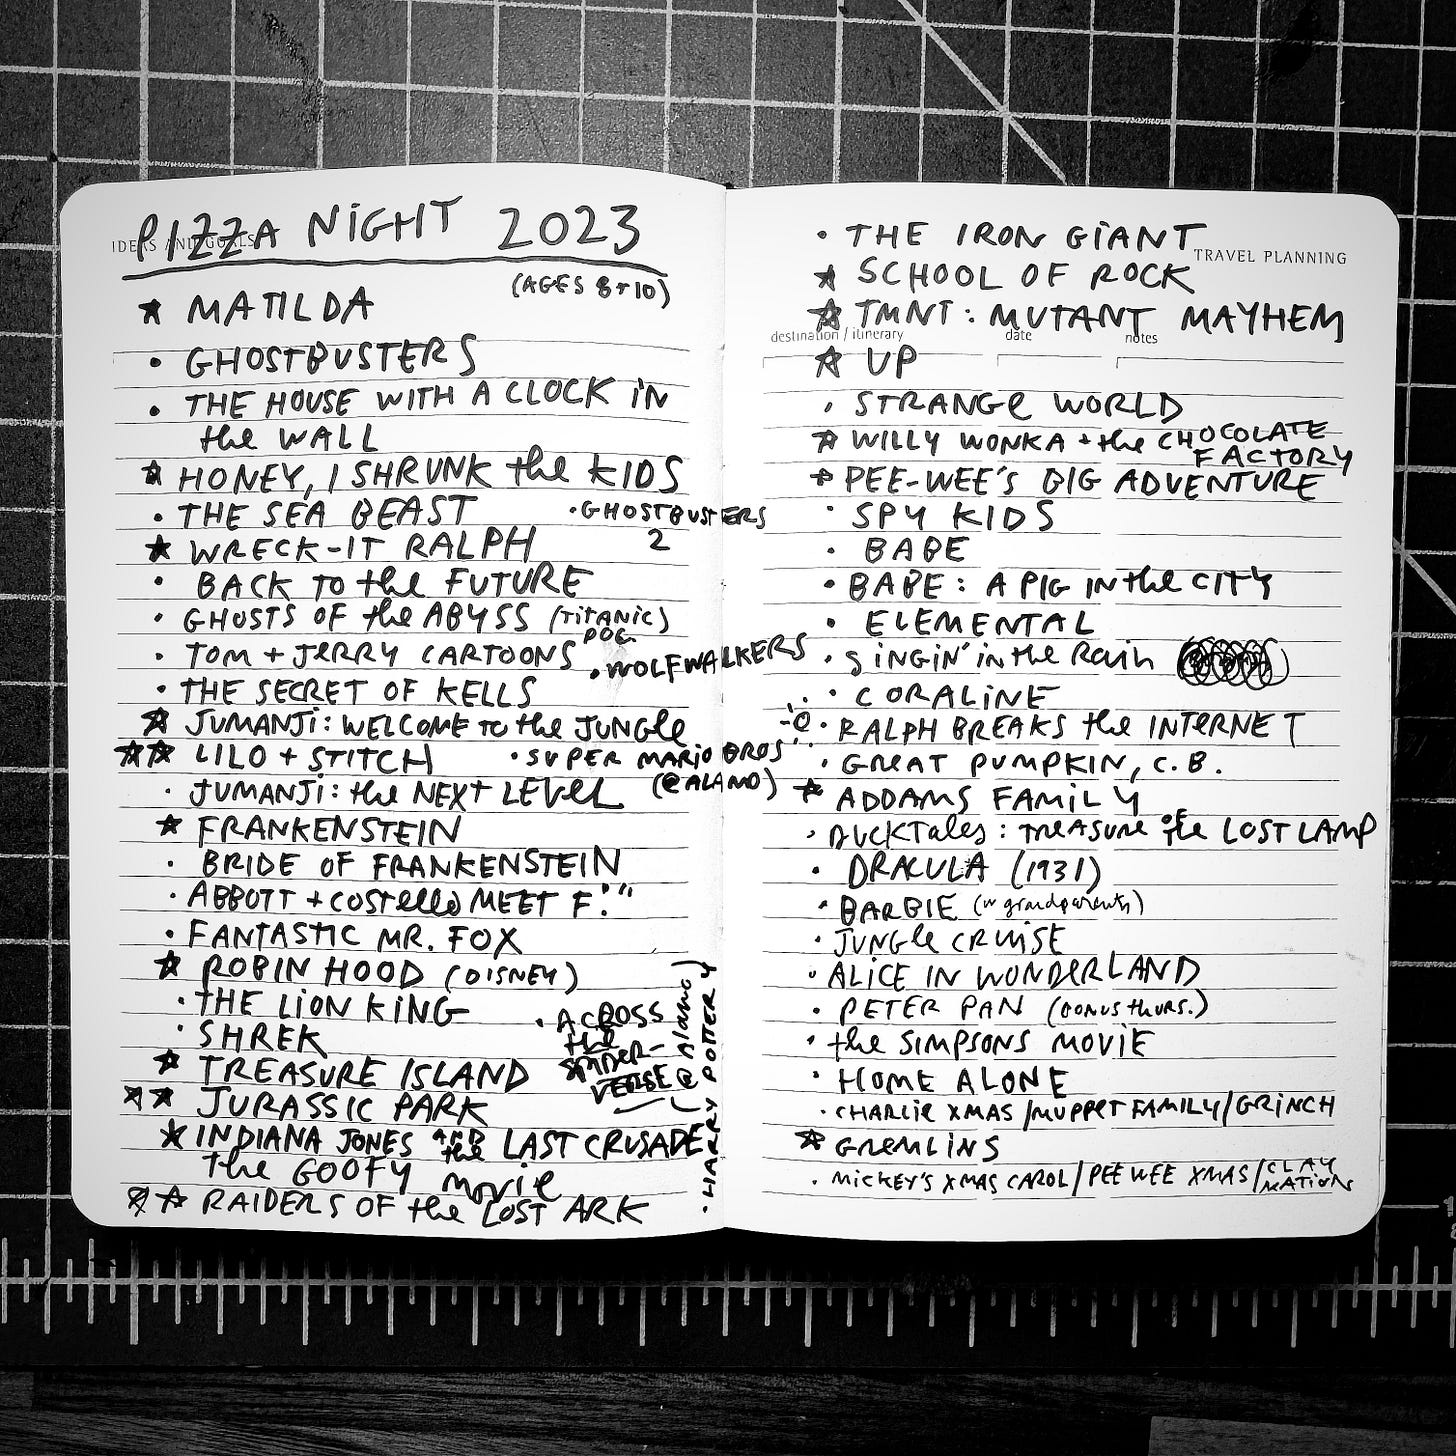 PIZZA NIGHT 2023
IDEAS AND GOALS
(AGES 8+10)
★ MATILDA
• GHOSTBUSTERS
• THE HOUSE WITH A CLOCK IN
the WALL
★ HONEY, I SHRUNK the KIDS
• THE SEA BEAST
• GHOSTBUSTERS
2
★ WRECK-IT RALPH
• BACK TO the FUTURE
• GHOSTS OF the ABYSS (TITANIC)
DOC.
• TOM + JERRY CARTOONS
• WOLFWALKERS
• THE SECRET OF KELLS
★ JUMANJI: WELCOME TO the JUNGLE
★★ LILO + STITCH
• SUPER MARIO BROS
(@ALAMO)
• JUMANJI: the NEXT LEVEL
★ FRANKENSTEIN
• BRIDE OF FRANKENSTEIN
• ABBOTT + COSTELLO MEET F.""
• FANTASTIC MR. FOX
★ ROBIN HOOD (DISNEY)
• THE LION KING
• SHREK
• ACROSS
the
SPIDER-
VERSE
★ TREASURE ISLAND
★★ JURASSIC PARK
★ INDIANA JONES AND the LAST CRUSADE
the GOOFY movie
★★ RAIDERS OF the LOST ARK
• HARRY POTTER
(@ Alamo)
• THE IRON GIANT
TRAVEL PLANNING
★ SCHOOL OF ROCK
★ TMNT: MUTANT MAYHEM
destination / itinerary date notes
★ UP
• STRANGE WORLD
★ WILLY WONKA + the CHOCOLATE
FACTORY
★ PEE-WEE'S BIG ADVENTURE
• SPY KIDS
• BABE
• BABE: A PIG IN the CITY
• ELEMENTAL
• SINGIN' in the Rain
• CORALINE
• RALPH BREAKS the INTERNET
• GREAT PUMPKIN, C.B.
★ ADDAMS FAMILY
• DUCKTALES: TREASURE OF the LOST LAMP
• DRACULA (1931)
• BARBIE (w grandparents)
• JUNGLE CRUISE
• ALICE IN WONDERLAND
• PETER PAN (BONUS THURS.)
• the SIMPSONS MOVIE
• HOME ALONE
• CHARLIE XMAS/MUPPET FAMILY/GRINCH
★ GREMLINS
• MICKEY'S XMAS CAROL/PEE WEE XMAS/CLAY
MATION